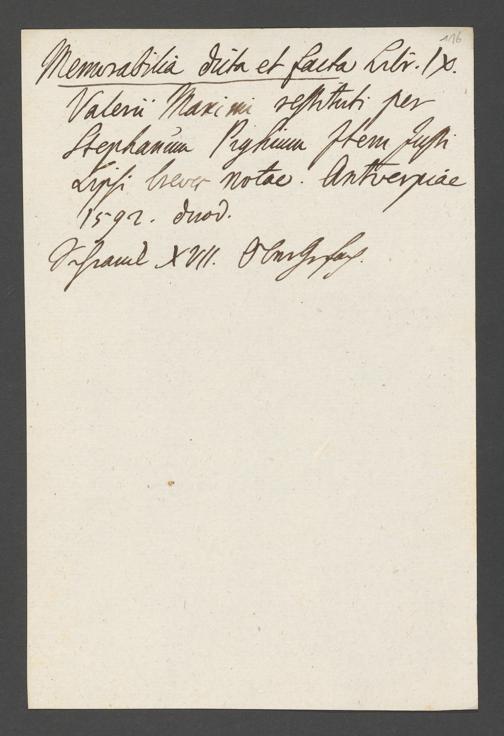 116
Memorabilia dicta et facta Libr. IX.
Valerii Maximi restituti per
Stephanum Pighium Item Justi
Lipsi breves notae. Antverpiae
1592. duod.
Schrank XVII.